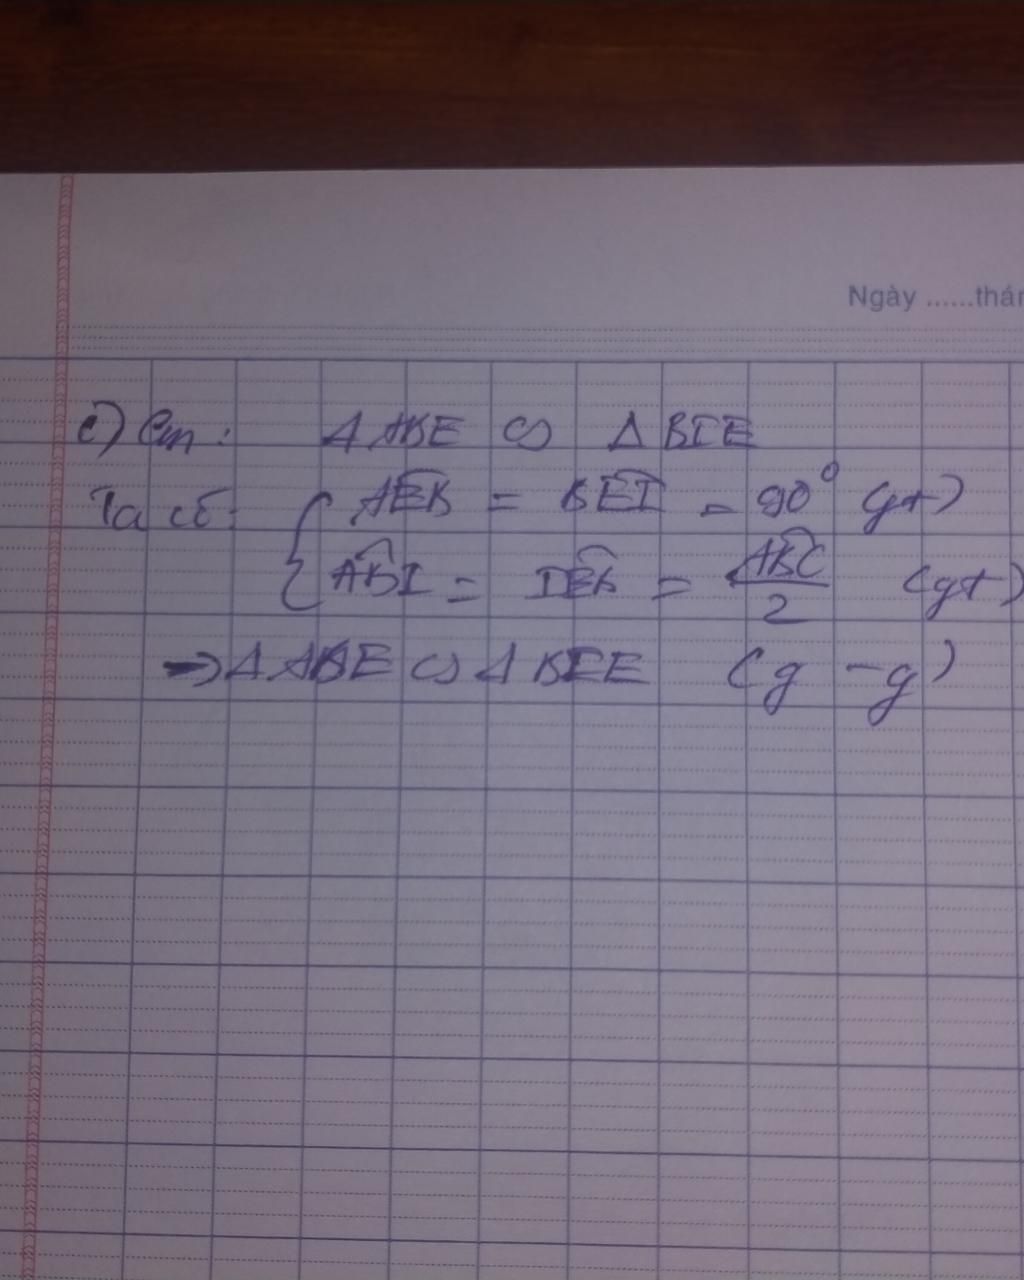 Ngày ......thán
c) Cm: Δ ABE ∽ Δ BIE
Ta có: { AEB = BEI = 90° (gt)
ABI = IBK = ABC/2 (gt)
→ Δ ABE ∽ Δ BIE (g - g)